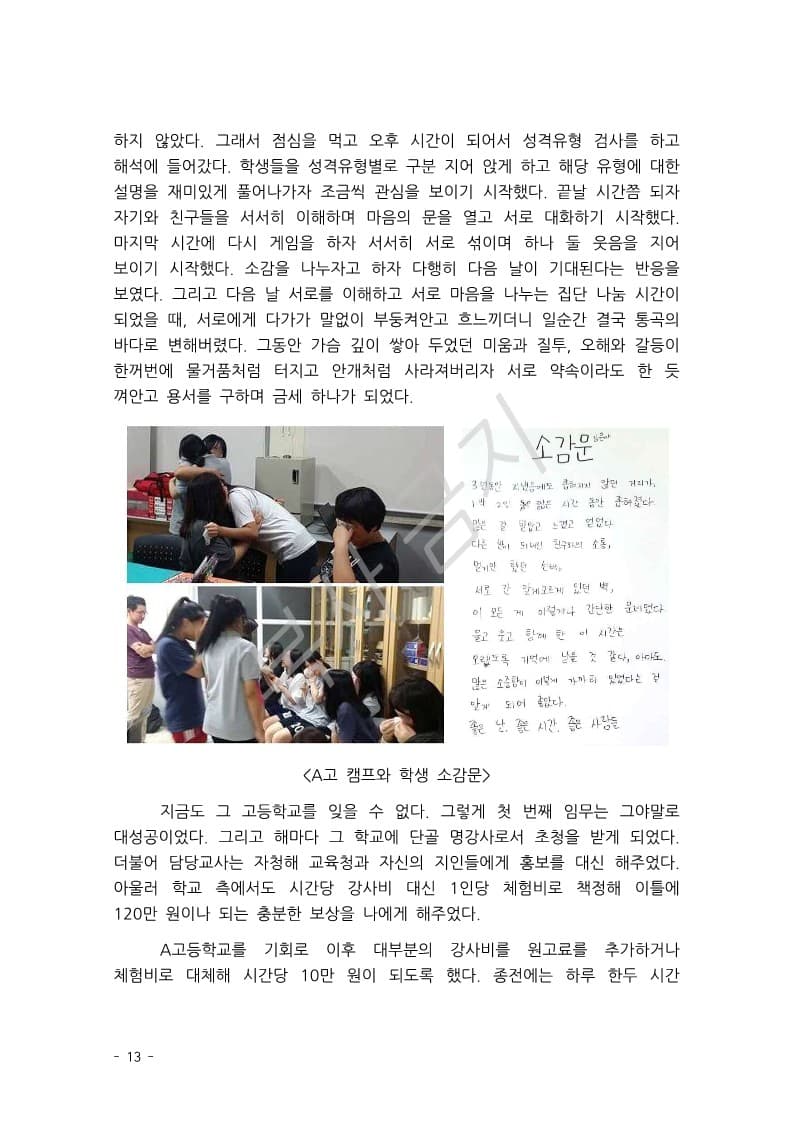 하지 않았다. 그래서 점심을 먹고 오후 시간이 되어서 성격유형 검사를 하고
해석에 들어갔다. 학생들을 성격유형별로 구분 지어 앉게 하고 해당 유형에 대한
설명을 재미있게 풀어나가자 조금씩 관심을 보이기 시작했다. 끝날 시간쯤 되자
자기와 친구들을 서서히 이해하며 마음의 문을 열고 서로 대화하기 시작했다.
마지막 시간에 다시 게임을 하자 서서히 서로 섞이며 하나 둘 웃음을 지어
보이기 시작했다. 소감을 나누자고 하자 다행히 다음 날이 기대된다는 반응을
보였다. 그리고 다음 날 서로를 이해하고 서로 마음을 나누는 집단 나눔 시간이
되었을 때, 서로에게 다가가 말없이 부둥켜안고 흐느끼더니 일순간 결국 통곡의
바다로 변해버렸다. 그동안 가슴 깊이 쌓아 두었던 미움과 질투, 오해와 갈등이
한꺼번에 물거품처럼 터지고 안개처럼 사라져버리자 서로 약속이라도 한 듯
껴안고 용서를 구하며 금세 하나가 되었다.
소감문
3년동안 지냈음에도 좁혀지지 않던 거리가,
1박 2일 짧은 시간 동안 좁혀졌다.
많은 걸 깨닫고 느꼈고 얻었다.
다른 반이 되버린 친구와의 소통,
서로 간 알게모르게 있던 벽,
이 모든 게 이렇게나 간단한 문제였다.
울고 웃고 함께 한 이 시간은
오래도록 기억에 남을 것 같다, 아마도.
많은 소중함이 이렇게 가까이 있었다는 걸
알게 되어 좋았다.
좋은 날, 좋은 시간, 좋은 사람들
<A고 캠프와 학생 소감문>
지금도 그 고등학교를 잊을 수 없다. 그렇게 첫 번째 임무는 그야말로
대성공이었다. 그리고 해마다 그 학교에 단골 명강사로서 초청을 받게 되었다.
더불어 담당교사는 자청해 교육청과 자신의 지인들에게 홍보를 대신 해주었다.
아울러 학교 측에서도 시간당 강사비 대신 1인당 체험비로 책정해 이틀에
120만 원이나 되는 충분한 보상을 나에게 해주었다.
A고등학교를 기회로 이후 대부분의 강사비를 원고료를 추가하거나
체험비로 대체해 시간당 10만 원이 되도록 했다. 종전에는 하루 한두 시간
- 13 -